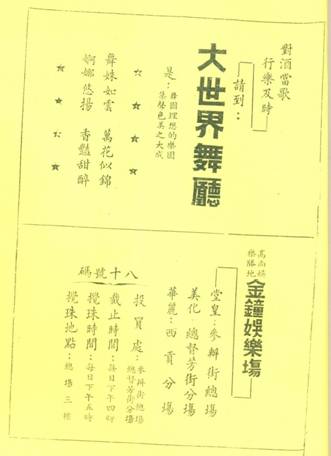 對酒當歌
行樂及時
請到：
大世界舞廳
是：舞國理想的樂園
集聲色美之大成
舞妹如雲　萬花似錦
婀娜悠揚　香豔甜醉
高尚娛
樂勝地
金鐘娛樂場
堂皇：參辦街總場
美化：總督芳街分場
華麗：西貢分場
八十號碼
投買處：參辦街總場
總督芳街分場
截止時間：每日下午四時
攪珠時間：每日下午五時
攪珠地點：總場三樓